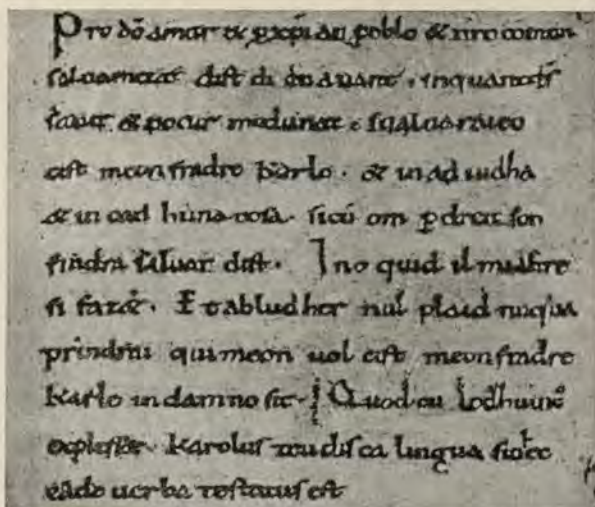 Pro dō amur & ꝓ xp̄ian poblo & nr̄o cōmun
saluament. dist di en auant. inquantd̄s
sauir & podir medunat. sisaluaraieo
cist meon fradre Karlo. & in ad iudha
& in cad huna cosa. sicū om ꝑ dreit son
fradra saluar dist. Ino quid il mialtre
si faz&. Et abludher nul plaid nūquā
prindrai qui meon uol cist meonfradre
Karlo in damno sit. Quod cū Lodhuuic
explesset. Karolus teudisca lingua sic hec
eadē uerba testatus est